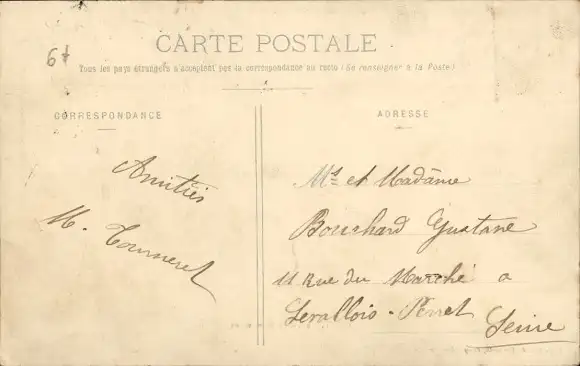 6f
CARTE POSTALE
Tous les pays étrangers n'acceptent pas la correspondance au recto (Se renseigner à la Poste)
CORRESPONDANCE
Amitiés
M. Tourneret
ADRESSE
Mr et Madâme
Bouchard Gustave
11 Rue du Marché a
Levallois-Perret
Seine